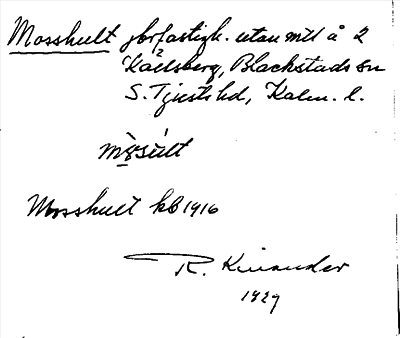 Mosshult jbrfastigh. utan mtl å 2
Kåelsberg, Blackstads sn
S. Tjusts hd, Kalm. l.
Mosshult kb 1916
R. Kinander
1929